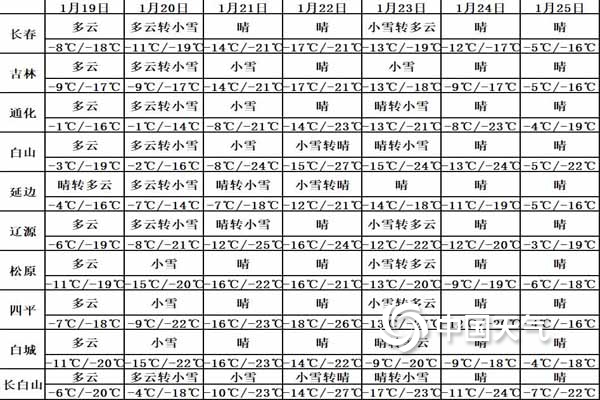 1月19日 1月20日 1月21日 1月22日 1月23日 1月24日 1月25日
长春 多云 多云转小雪 晴 晴 小雪转多云 晴 晴
-8℃/-18℃ -11℃/-19℃ -14℃/-21℃ -17℃/-21℃ -13℃/-19℃ -12℃/-17℃ -5℃/-16℃
吉林 多云 多云转小雪 小雪 晴 小雪 晴 晴
-9℃/-17℃ -9℃/-17℃ -14℃/-21℃ -17℃/-21℃ -13℃/-18℃ -9℃/-17℃ -5℃/-16℃
通化 多云 多云转小雪 小雪 晴 晴转小雪 晴 晴
-1℃/-16℃ -1℃/-14℃ -8℃/-21℃ -14℃/-23℃ -13℃/-21℃ -8℃/-23℃ -4℃/-19℃
白山 多云 多云转小雪 小雪 小雪转晴 晴转小雪 晴 晴
-3℃/-19℃ -2℃/-16℃ -8℃/-24℃ -15℃/-27℃ -15℃/-24℃ -13℃/-24℃ -5℃/-22℃
延边 晴转多云 多云转小雪 晴转小雪 小雪转晴 晴 晴 晴
-4℃/-16℃ -7℃/-14℃ -7℃/-18℃ -12℃/-21℃ -14℃/-18℃ -11℃/-19℃ -5℃/-16℃
辽源 多云 多云转小雪 晴转小雪 晴 小雪转多云 晴 晴
-6℃/-19℃ -8℃/-21℃ -12℃/-25℃ -16℃/-24℃ -12℃/-22℃ -12℃/-20℃ -3℃/-19℃
松原 多云 小雪 晴 晴 小雪转多云 晴 晴
-11℃/-19℃ -15℃/-20℃ -16℃/-22℃ -16℃/-21℃ -13℃/-20℃ -9℃/-19℃ -6℃/-18℃
四平 多云 小雪 晴 晴 小雪转多云 晴 晴
-7℃/-18℃ -9℃/-22℃ -16℃/-23℃ -18℃/-26℃ -16℃
中国天气
白城 多云 小雪 晴 晴 晴转多云 晴 晴
-11℃/-20℃ -15℃/-22℃ -16℃/-23℃ -14℃/-22℃ -9℃/-20℃ -9℃/-18℃ -4℃/-18℃
长白山 多云 多云转小雪 小雪 小雪转晴 晴转小雪 晴 晴
-6℃/-20℃ -4℃/-18℃ -10℃/-23℃ -14℃/-27℃ -17℃/-23℃ -11℃/-24℃ -7℃/-22℃